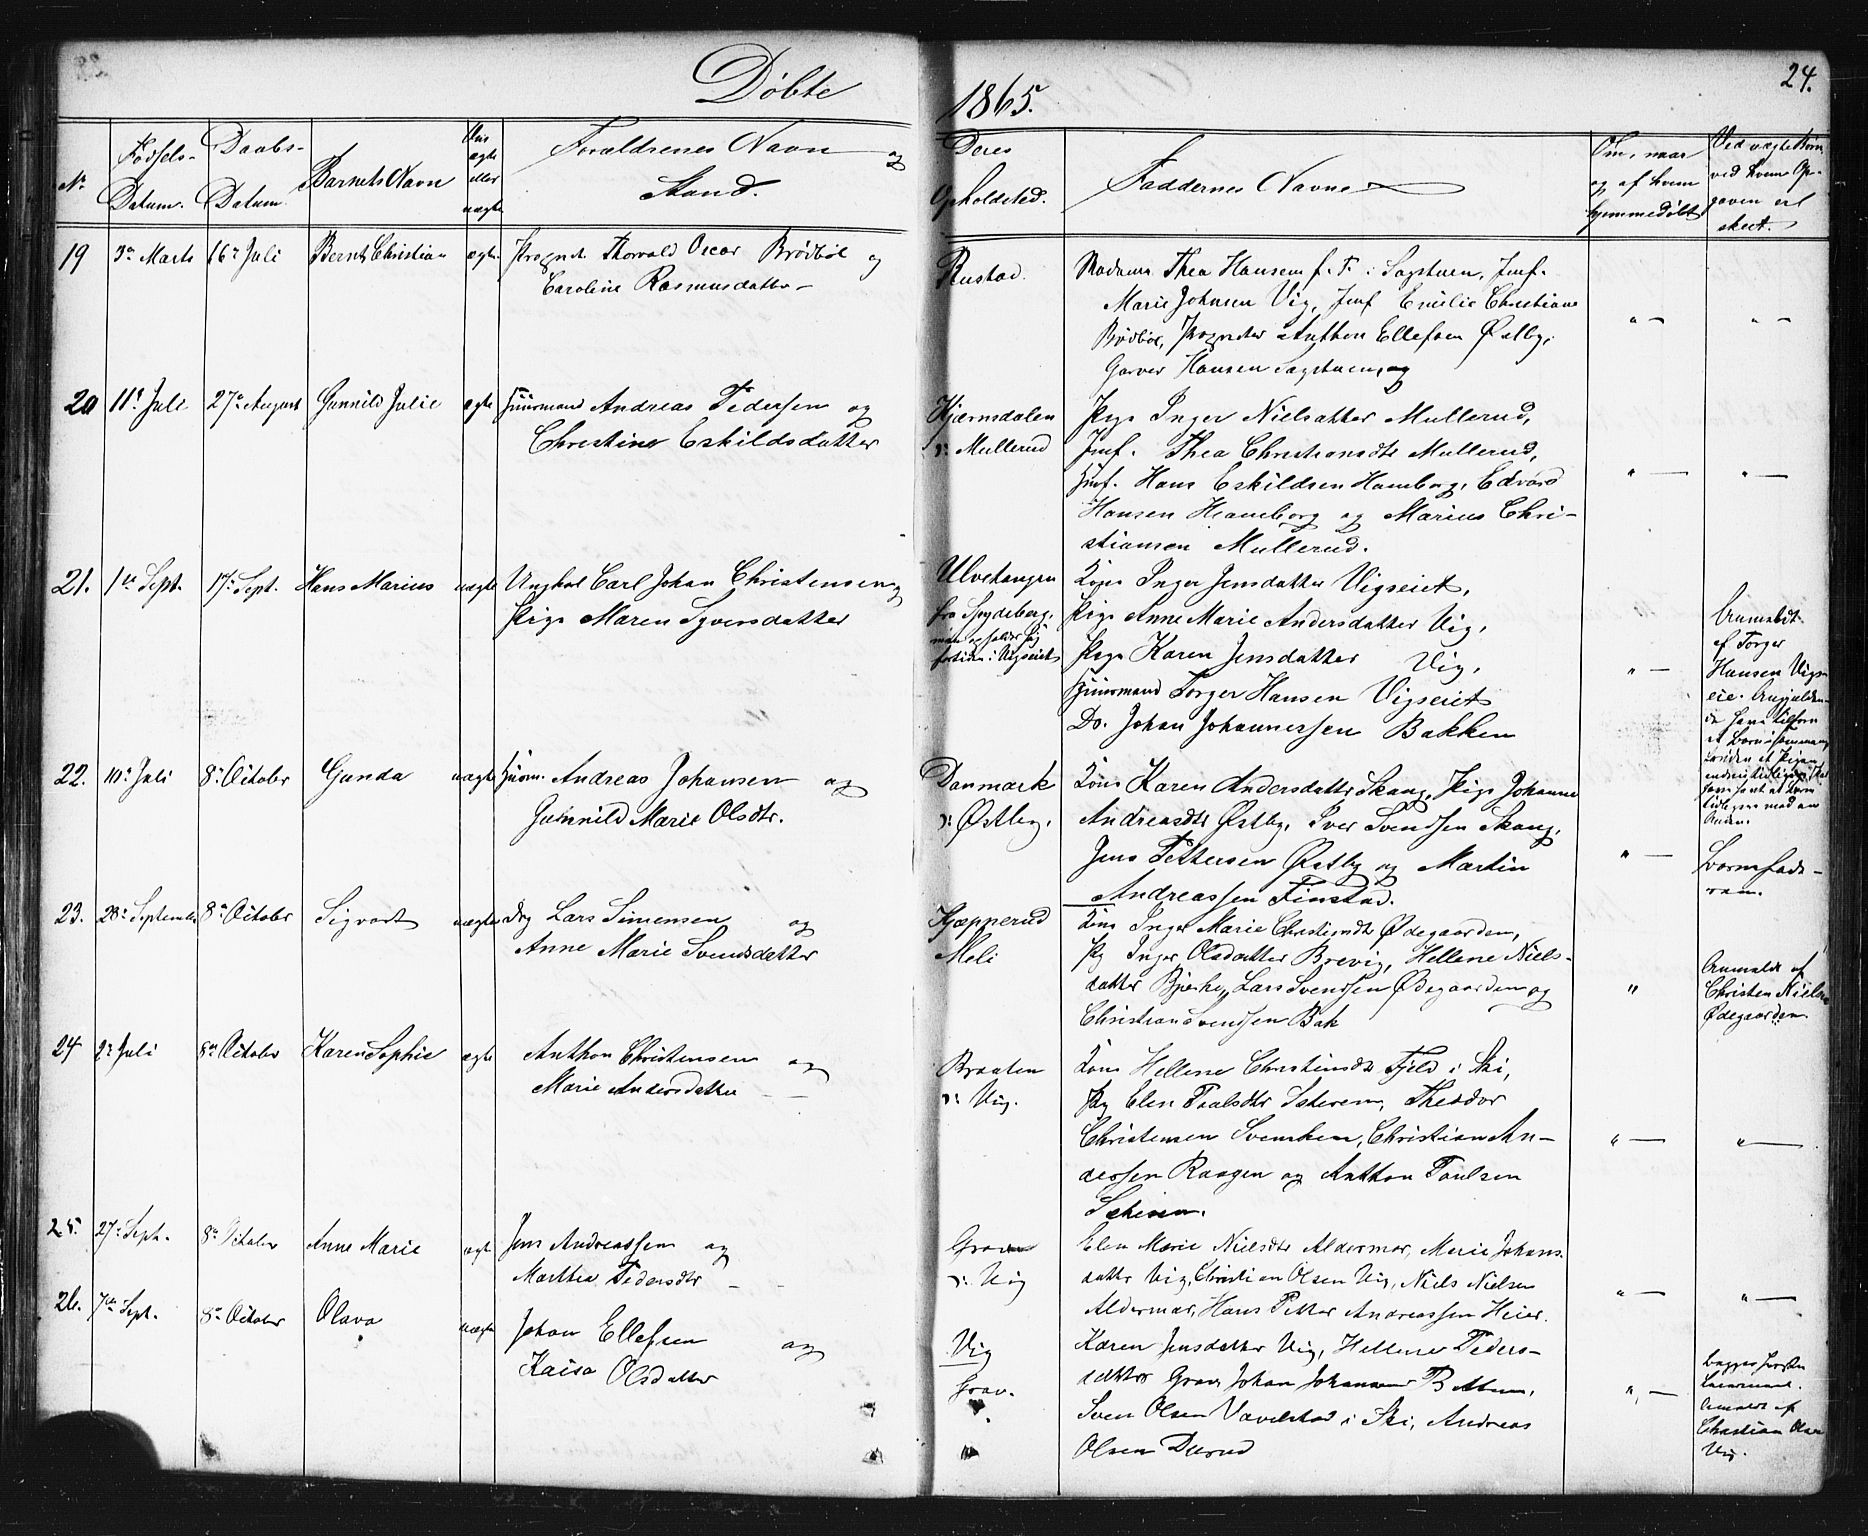 Döbte
1865.
24.
No
Födsels-
Datum.
Daabs-
Datum.
Barnets Navn
Om
ægte
eller
uægte
Forældrenes Navn og
Stand.
Deres
Opholdsted.
Faddernes Navne
Om, naar
og af hvem
hjemmedöbt
Ved uægte Börn
ved hvem Op-
gaven er
skeet.
19
3die Marts
16de Juli
Bernt Christian
ægte
Thorvald Oscar Brödböl og
Caroline Rasmusdatter
Rustad.
Madame Thea Hansen f. F. i Sagstuen, Jmf.
Marie Johnsen Vig, Jmf Emilie Christiane
Brödböl, Anthon Ellefsen Østby,
Garver Hansen Sagstuen og
" —
" —
20
11te Juli
27de August
Gunnild Julie
ægte
Huusmand Andreas Pedersen og
Christine Eskildsdatter
Kjærnsdalen
Pige Inger Nielsdatter Mullerud,
ɔ: Mullerud
Jmf. Thea Christiansdtr Mullerud,
Hans Eskildsen Hamborg, Edvard
Hansen Hamborg og Marius Chri-
stiansen Mullerud.
" —
" —
21.
1ste Sept.
17de Sept.
Hans Marius
uægte
Ungkal Carl Johan Christensen og
Pige Maren Syversdatter
Ulvetangen
fra Spydeberg,
men opholder sig
for tiden i Vigseiet
Kone Inger Jensdatter Vigseiet,
Pige Anne Marie Andersdatter Vig,
Pige Karen Jensdatter Vig,
Huusmand Torger Hansen Vigseiet
Do. Johan Johannessen Bakken
" —
Anmeldt
af Torger
Hansen Vigs-
eie. Angivelden-
de have tilforn
et Barn sammen,
Anden.
22.
10de Juli
8de October
Gunda
uægte
Huusm. Andreas Johansen og
Gunnild Marie Olsdtr.
Danmark
ɔ: Østby.
Kone Karen Andersdatter Skaug, Pige Johanne
Andreasdtr Østby, Iver Svendsen Skaug,
Jens Pettersen Østby og Martin
Andreassen Finstad.
" —
Barnefade-
ren.
23.
28de September
8de October
Sigvart
uægte
Drg Lars Simensen og
Anne Marie Svendsdatter
Kjæpperud
Meli
Kone Inger Marie Christiansdtr Ødegaarden,
Pg Inger Olsdatter Brevig, Hellene Niels-
datter Bjerke, Lars Svendsen Ødegaarden og
Christian Svendsen Bak
"
Anmeldt af
Christen Nielsen
Ødegaarden
24
2de Juli
8de October
Karen Sophie
ægte
Anthon Christensen og
Marie Andersdatter —
Braaten
ɔ: Vig.
Kone Hellene Christensdtr Fjeld i Ski,
Pg Elen Paulsdtr Sekeren, Theodor
Christensen Svenken, Christian An-
dersen Raagen og Anthon Paulsen
" —
" —
25.
27de Sept.
8de October
Anne Marie
ægte
Jens Andreassen og
Marthea Pedersdtr —
Grav
ɔ: Vig
Elen Marie Nielsdtr Aldermor, Marie Johans
datter Vig, Christian Olsen Vig, Niels Nielsen
Aldermor, Hans Petter Andreassen Heier.
" —
" —
26.
7de Sept.
8de October
Olava
uægte
Johan Ellefsen og
Kaisa Olsdatter
Vig
Grav.
Karen Jensdatter Vig, Hellene Peders-
datter Grav, Johan Johannesen Bakken,
Sven Olsen Vavelstad i Ski, Andreas
Olsen Dürud
" —
Begges første
Leiermaal.
Anmeldt af
Christian Olsen
Vig.